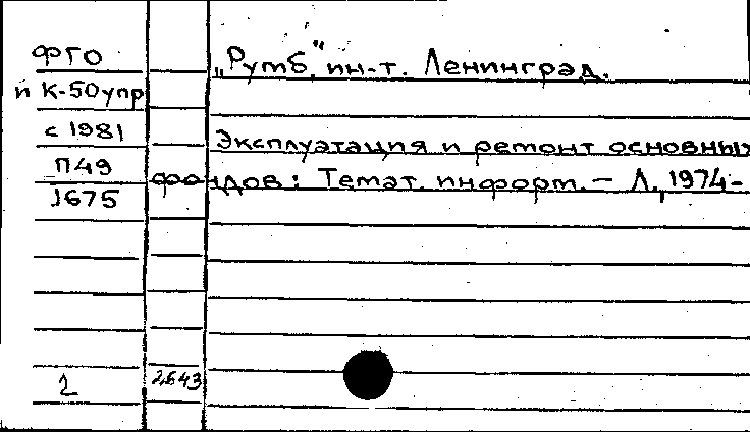 ФГО
и К-50упр
с 1981
П49
J675
1
2643
„Румб" ин-т. Ленинград.
Эксплуатация и ремонт основных
фондов: Темат. информ. — Л., 1974-